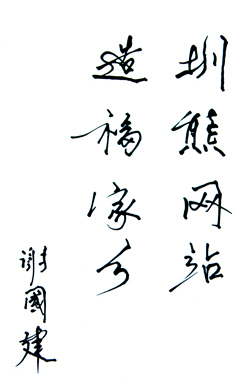 圳网站
造福家乡
谢國建